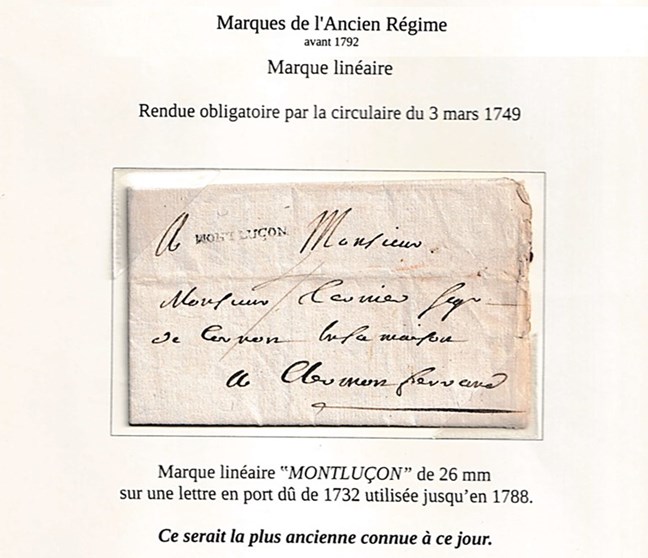 Marques de l'Ancien Régime
avant 1792
Marque linéaire
Rendue obligatoire par la circulaire du 3 mars 1749
A MONTLUÇON Monsieur
Monsieur
de en sa maison
a Clermon ferrand
Marque linéaire "MONTLUÇON" de 26 mm
sur une lettre en port dû de 1732 utilisée jusqu'en 1788.
Ce serait la plus ancienne connue à ce jour.